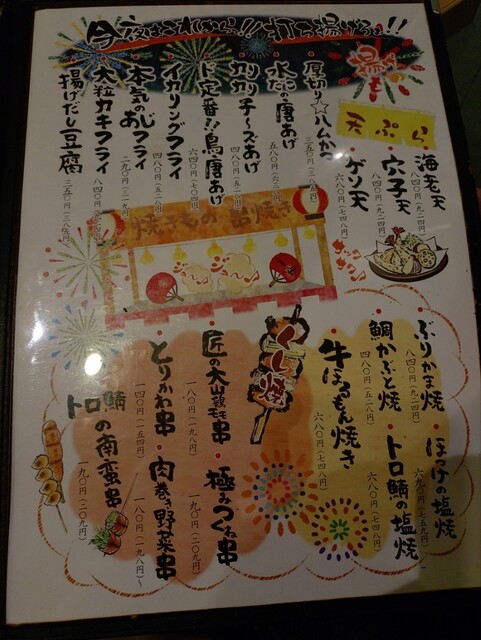 今夜はこれから!!打ち揚げろぉ!!
揚げもの
厚切り☆ハムかつ
三五〇円(三八五円)
水だこの唐あげ
五八〇円(六三八円)
カリカリチーズあげ
四八〇円(五二八円)
ド定番!!鳥唐あげ
六四〇円(七〇四円)
イカリングフライ
四八〇円(五二八円)
本気のあじフライ
二九〇円(三一九円)
大粒カキフライ
八四〇円(九二四円)
揚げだし豆腐
三五〇円(三八五円)
天ぷら
海老天
八四〇円(九二四円)
穴子天
八四〇円(九二四円)
ゲソ天
六八〇円(七四八円)
サックサク
焼きもの 串焼き
ぶりかま焼
八四〇円(九二四円)
ほっけの塩焼
六九〇円(七五九円)
鯛かぶと焼
四八〇円(五二八円)
トロ鯖の塩焼
六八〇円(七四八円)
牛ほるもん焼き
六八〇円(七四八円)
くし焼
匠の大山鶏もも串
一八〇円(一九八円)
極みつくね串
一九〇円(二〇九円)
とりかわ串
一四〇円(一五四円)
肉巻き野菜串
一八〇円(一九八円)~
トロ鯖の南蛮串
一九〇円(二〇九円)